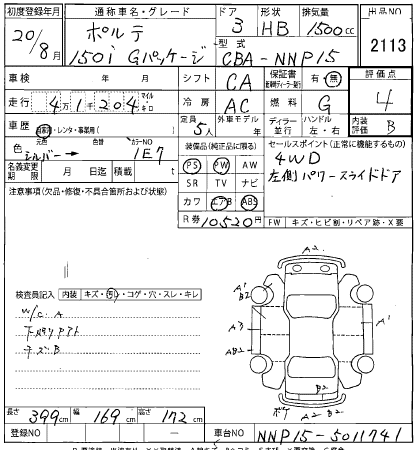 初度登録年月 通称車名・グレード ドア 形状 排気量 出品NO
20/8月 ポルテ 150i Gパッケージ 3 HB 1500cc 2113
型式 CBA-NNP15
車検 年 月 シフト CA 保証書 有・無 評価点
走行 4万1千204 マイル キロ 冷房 AC 燃料 G 4
車歴 自家用・レンタ・事業用( ) 定員 5人 外車モデル 年 ディーラー 並行 ハンドル 左・右 内装評価 B
色 元色 シルバー→ 色替 カラーNO 1E7 装備品(純正品に限る) セールスポイント(正常に機能するもの)
名義変更期限 月 日迄 積載 t PS PW AW 4WD
注意事項(欠品・修復・不具合箇所および状態) SR TV ナビ 左側パワースライドドア
カワ エアB ABS
R券 10520円 FW キズ・ヒビ割・リペア跡・X要
検査員記入 内装 キズ・汚・コゲ・穴・スレ・キレ
W/C A
下廻りサビ
キズB
A2
A1
B2
A1
A3
AB2
A1
B2
ボデ A2 B2
長さ 399cm 幅 169cm 高さ 172cm
登録NO — 車台NO NNP15-5011741